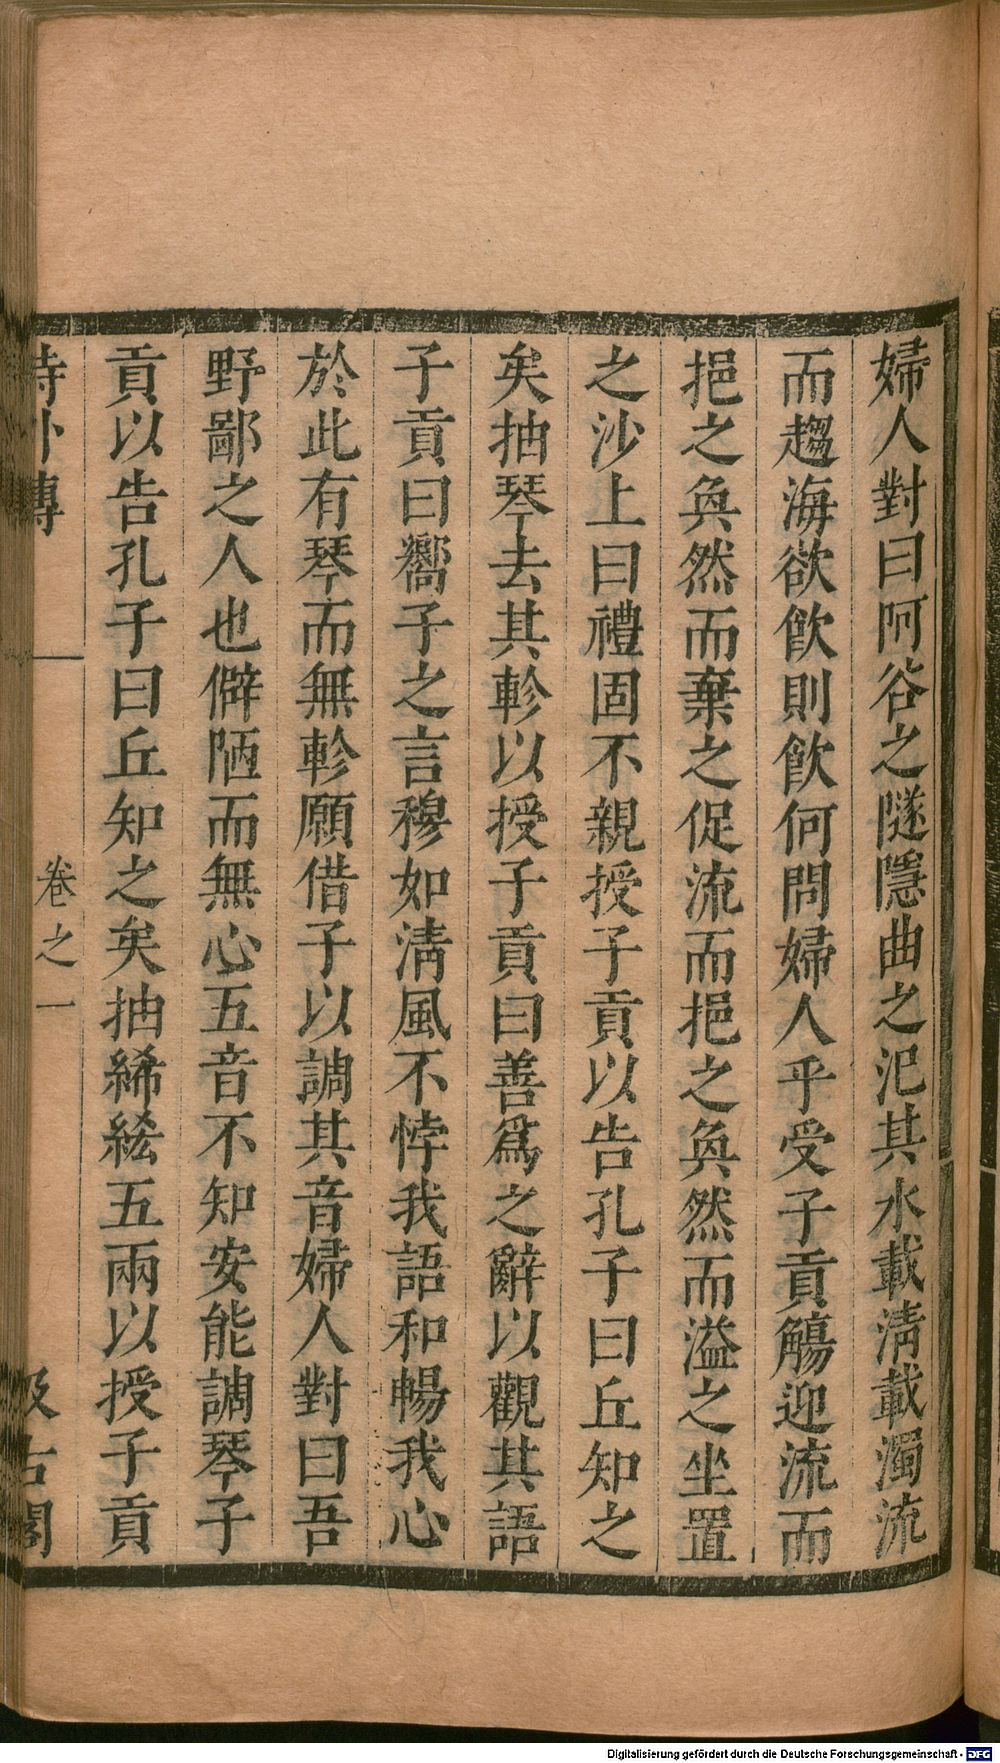 婦人對曰阿谷之隧隱曲之汜其水載淸載濁流
而趨海欲飮則飮何問婦人乎受子貢觴迎流而
挹之奐然而棄之促流而挹之奐然而溢之坐置
之沙上曰禮固不親授子貢以告孔子曰丘知之
矣抽琴去其軫以授子貢曰善爲之辭以觀其語
子貢曰嚮子之言穆如淸風不悖我語和暢我心
於此有琴而無軫願借子以調其音婦人對曰吾
野鄙之人也僻陋而無心五音不知安能調琴子
貢以告孔子曰丘知之矣抽絺綌五兩以授子貢
詩外傳 卷之一 汲古閣
Digitalisierung gefördert durch die Deutsche Forschungsgemeinschaft - DFG